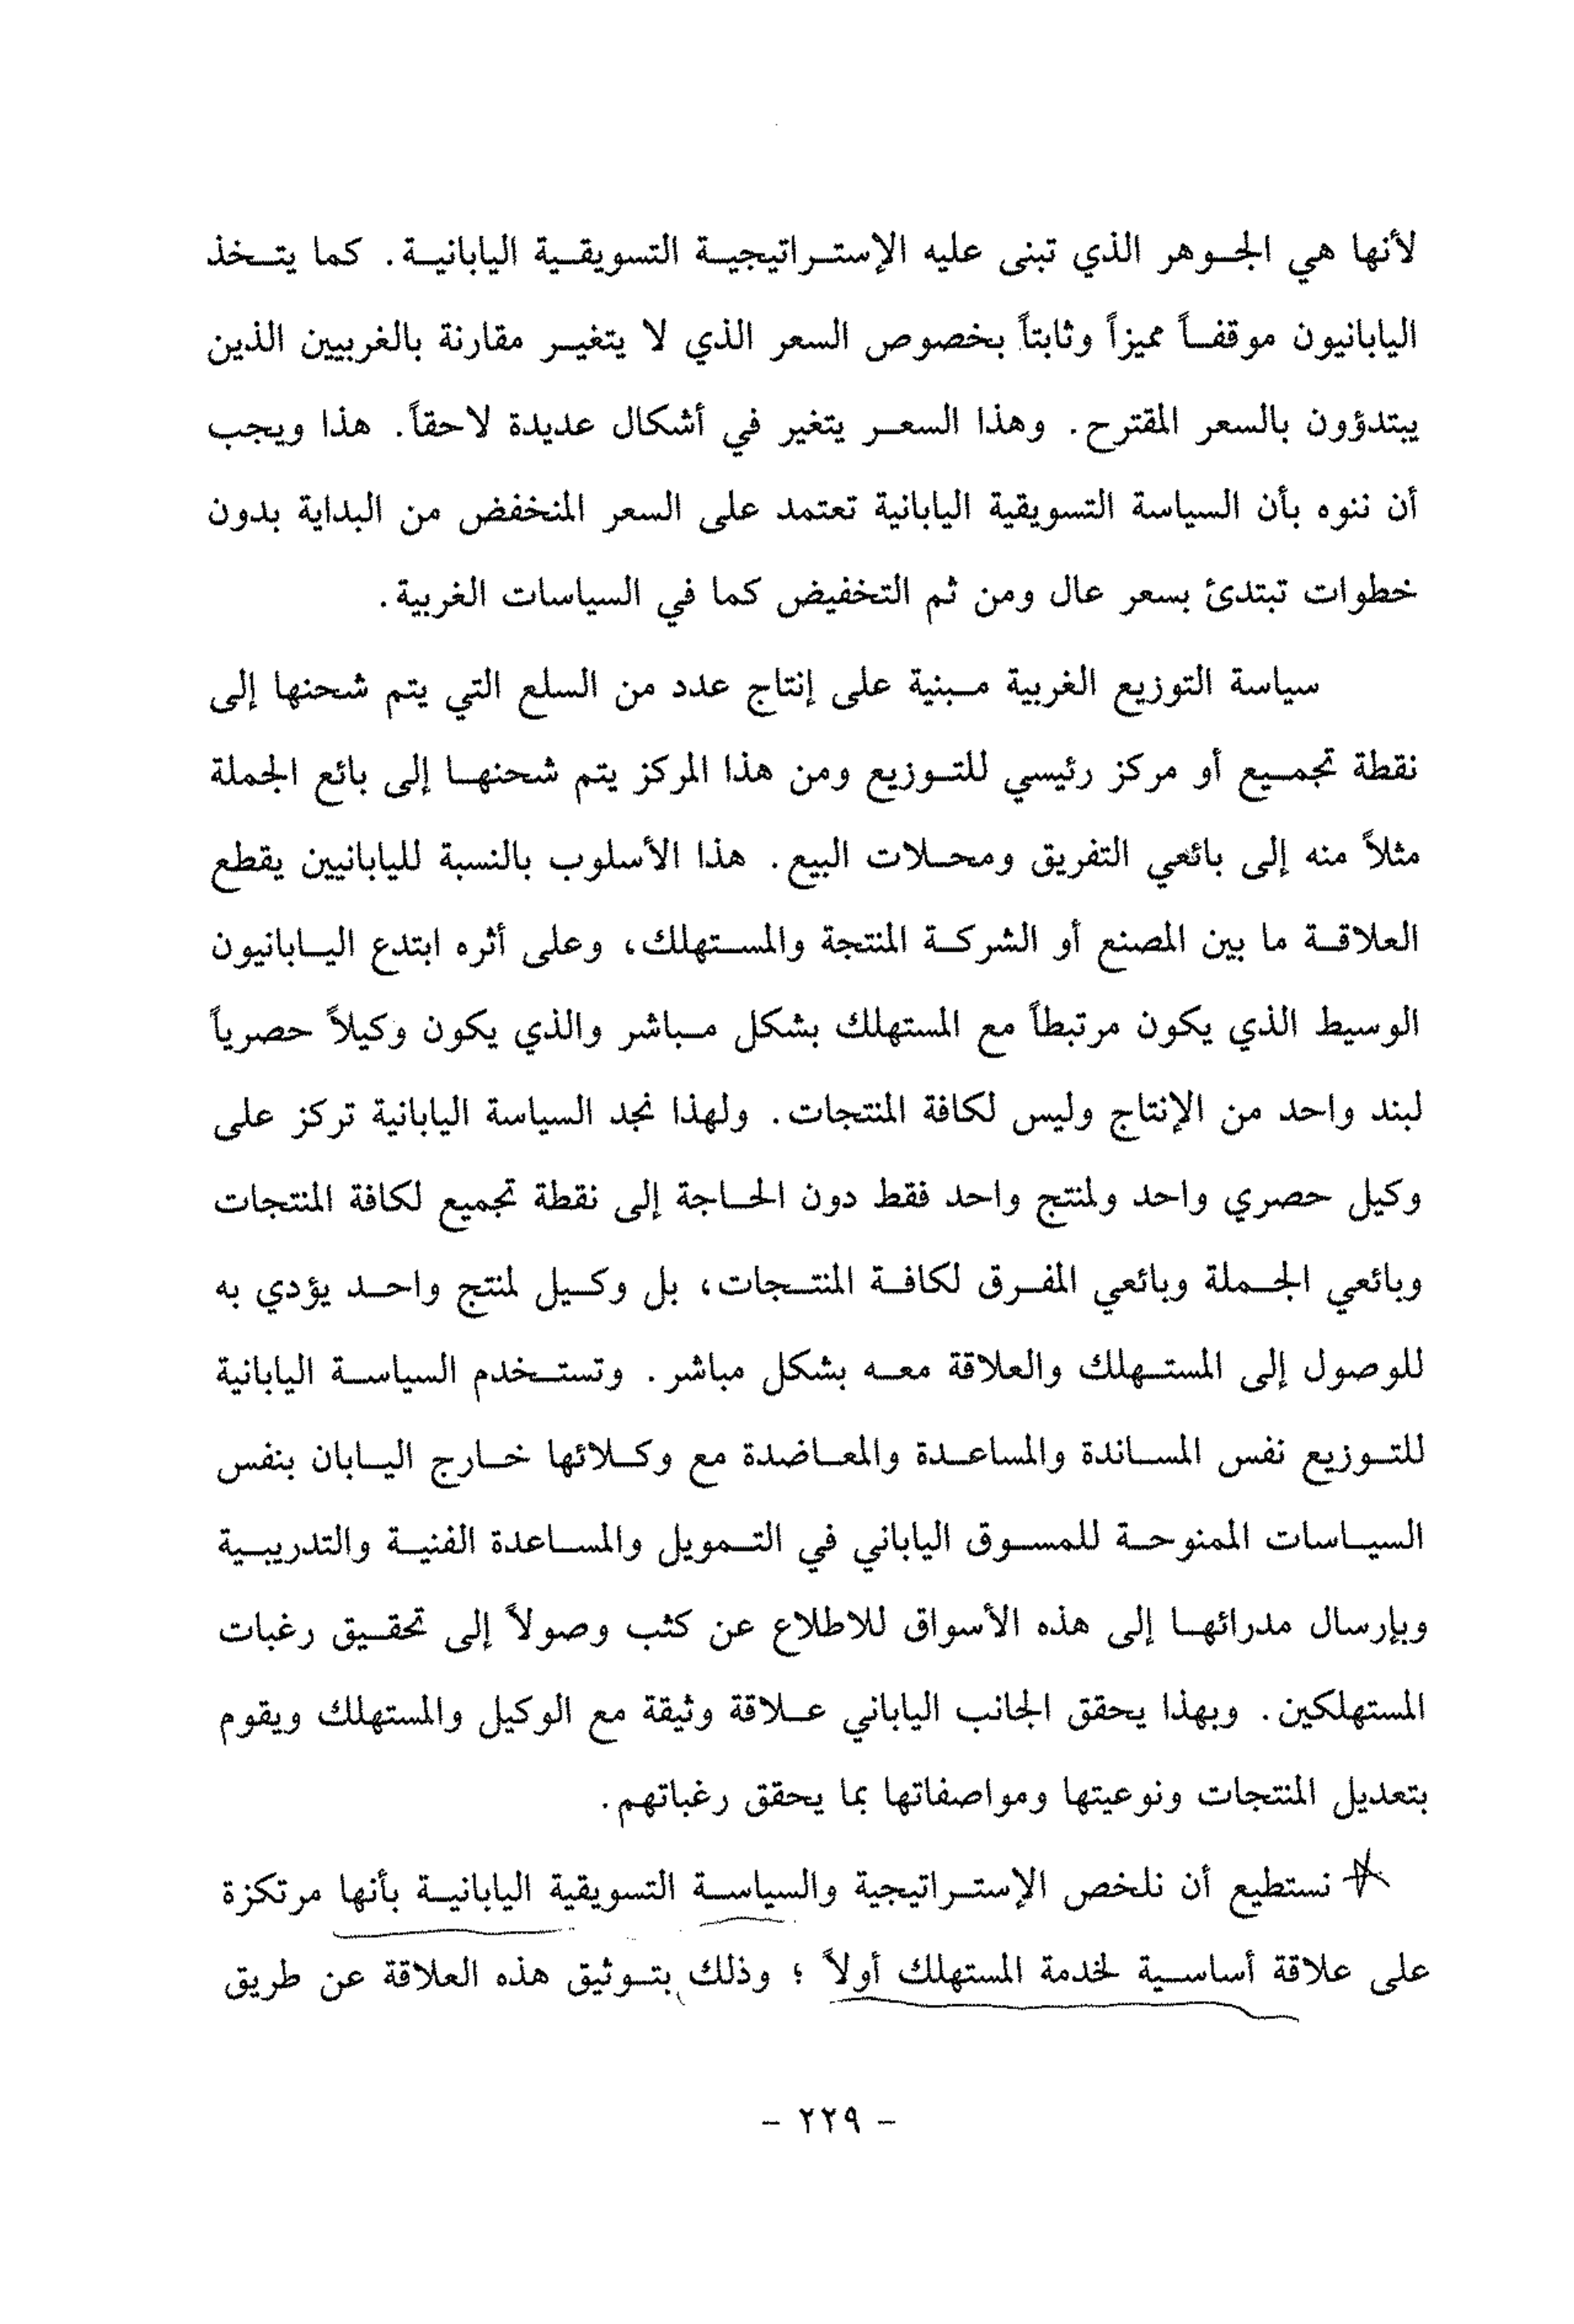 لأنها هي الجوهر الذي تبنى عليه الإستراتيجية التسويقية اليابانية. كما يتخذ
اليابانيون موقفاً مميزاً وثابتاً بخصوص السعر الذي لا يتغير مقارنة بالغربيين الذين
يبتدؤون بالسعر المقترح. وهذا السعر يتغير في أشكال عديدة لاحقاً. هذا ويجب
أن ننوه بأن السياسة التسويقية اليابانية تعتمد على السعر المنخفض من البداية بدون
خطوات تبتدئ بسعر عال ومن ثم التخفيض كما في السياسات الغربية.
سياسة التوزيع الغربية مبنية على إنتاج عدد من السلع التي يتم شحنها إلى
نقطة تجميع أو مركز رئيسي للتوزيع ومن هذا المركز يتم شحنها إلى بائع الجملة
مثلاً منه إلى بائعي التفريق ومحلات البيع. هذا الأسلوب بالنسبة لليابانيين يقطع
العلاقة ما بين المصنع أو الشركة المنتجة والمستهلك، وعلى أثره ابتدع اليابانيون
الوسيط الذي يكون مرتبطاً مع المستهلك بشكل مباشر والذي يكون وكيلاً حصرياً
لبند واحد من الإنتاج وليس لكافة المنتجات. ولهذا نجد السياسة اليابانية تركز على
وكيل حصري واحد ولمنتج واحد فقط دون الحاجة إلى نقطة تجميع لكافة المنتجات
وبائعي الجملة وبائعي المفرق لكافة المنتجات، بل وكيل لمنتج واحد يؤدي به
للوصول إلى المستهلك والعلاقة معه بشكل مباشر. وتستخدم السياسة اليابانية
للتوزيع نفس المساندة والمساعدة والمعاضدة مع وكلائها خارج اليابان بنفس
السياسات الممنوحة للمسوق الياباني في التمويل والمساعدة الفنية والتدريبية
وبإرسال مدرائها إلى هذه الأسواق للاطلاع عن كثب وصولاً إلى تحقيق رغبات
المستهلكين. وبهذا يحقق الجانب الياباني علاقة وثيقة مع الوكيل والمستهلك ويقوم
بتعديل المنتجات ونوعيتها ومواصفاتها بما يحقق رغباتهم.
نستطيع أن نلخص الإستراتيجية والسياسة التسويقية اليابانية بأنها مرتكزة
على علاقة أساسية لخدمة المستهلك أولاً ؛ وذلك بتوثيق هذه العلاقة عن طريق
- ٢٢٩ -